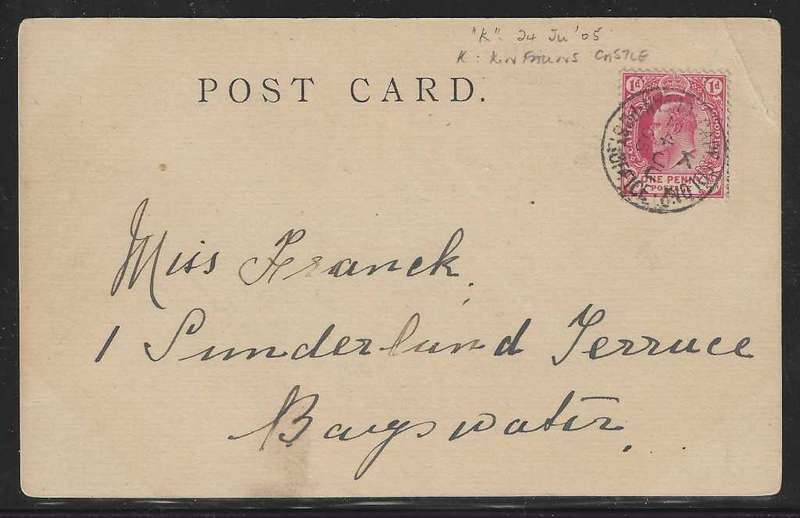 "K". 24 Ju '05
K: KINFAUNS CASTLE
POST CARD.
1d 1d
ONE PENNY
Miss Franck.
1 Sunderland Terrace
Bayswater.